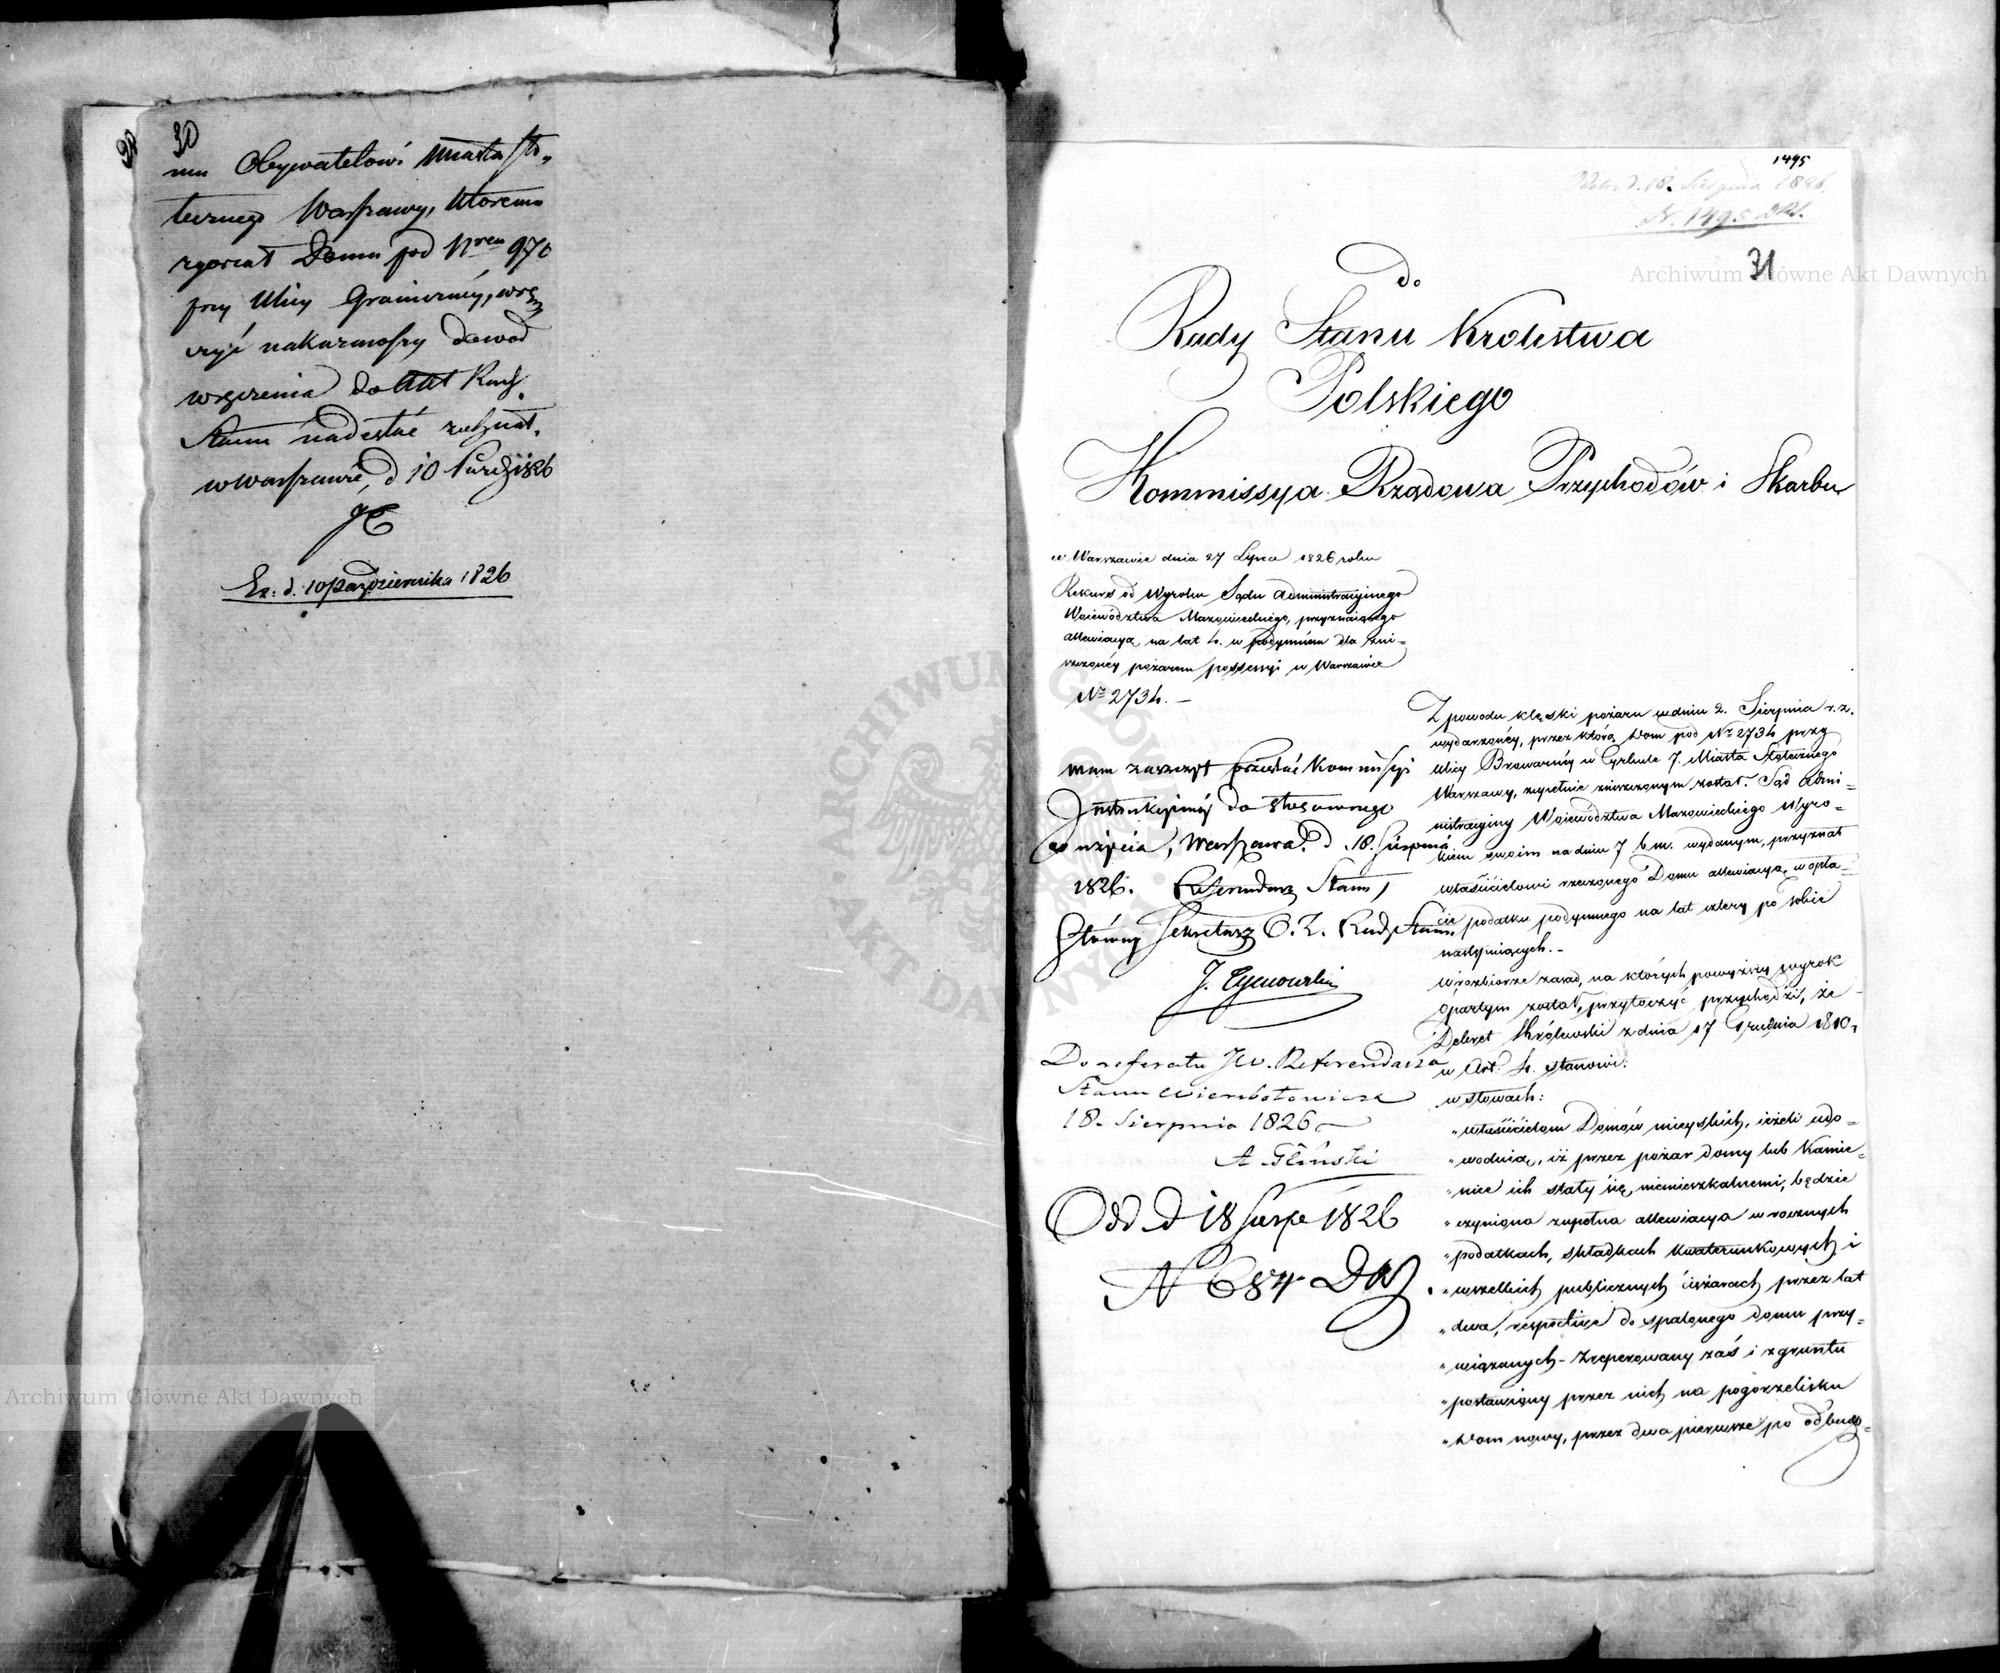 30
mu Obywatelowi Miasta Sto-
łecznego Warszawy, któremu
zgorzał Domu pod Nrem 970
przy Ulicy Graniczney, wrę-
czyć nakazawszy dowód
wręczenia do Akt Rady
Stanu nadesłać zechciał.
w Warszawie, d 10 Paźdz 1826
Ex: d. 10 Października 1826
1495
d. 18. Sierpnia 1826.
N. 1495
31
do
Rady Stanu Krolestwa
Polskiego
Kommissya Rządowa Przychodów i Skarbu
w Warszawie dnia 27 Lipca 1826 roku
Rekurs od Wyroku Sądu Administracyinego
Woiewództwa Mazowieckiego, przyznaiącego
allewiacyą na lat 4. w podymném dla zni-
szczonéy pożarem possessyi w Warszawie
No 2734. —
mam zaszczyt przesłać Kommissyi
Instrukcyinéy do stosownego
użycia, Warszawa d. 18. Sierpnia
1826. Referendarz Stanu,
Główny Sekretarz O. Z. Rady Stanu
Do referatu JW. Referendarza
Stanu Wierzbołowicza
18. Sierpnia 1826
A Gliński
Odd. d 18 Sierp 1826
N 684
Z powodu klęski pożaru w dniu 2. Sierpnia r. z.
wydarzonéy, przez którą Dom pod Nr 2734 przy
Ulicy Browarnéy w Cyrkule 7. Miasta Stołecznego
Warszawy, zupełnie zniszczonym został. Sąd Admi-
nistracyiny Woiewództwa Mazowieckiego Wyro-
kiem swoim na dniu 7 b m. wydanym, przyznał
właścicielowi rzeczonego Domu allewiacyą, w opła-
cie podatku podymnego na lat cztery po sobie
następuiących. —
W rozbiorze zasad, na których powyższy wyrok
opartym został, przytoczyć przychodzi, że
Dekret Królewski z dnia 17 Grudnia 1810 r
w Art. 4. stanowi:
w słowach:
"właścicielom Domów mieyskich, ieżeli udo-
"wodnią, iż przez pożar domy lub Kamie-
"nice ich stały się niemieszkalnemi, będzie
"czyniona zupełna allewiacya w rocznych
"podatkach, składkach kwaterunkowych i
"wszelkich publicznych ciężarach przez lat
"dwa, respective do spalonego domu przy-
"wiązanych - Zreperowany zaś i z gruntu
"postawiony przez nich na pogorzelisku
"Dom nowy, przez dwa pierwsze po odbudo-
Archiwum Główne Akt Dawnych
Archiwum Główne Akt Dawnych
ARCHIWUM GŁÓWNE
AKT DAWNYCH